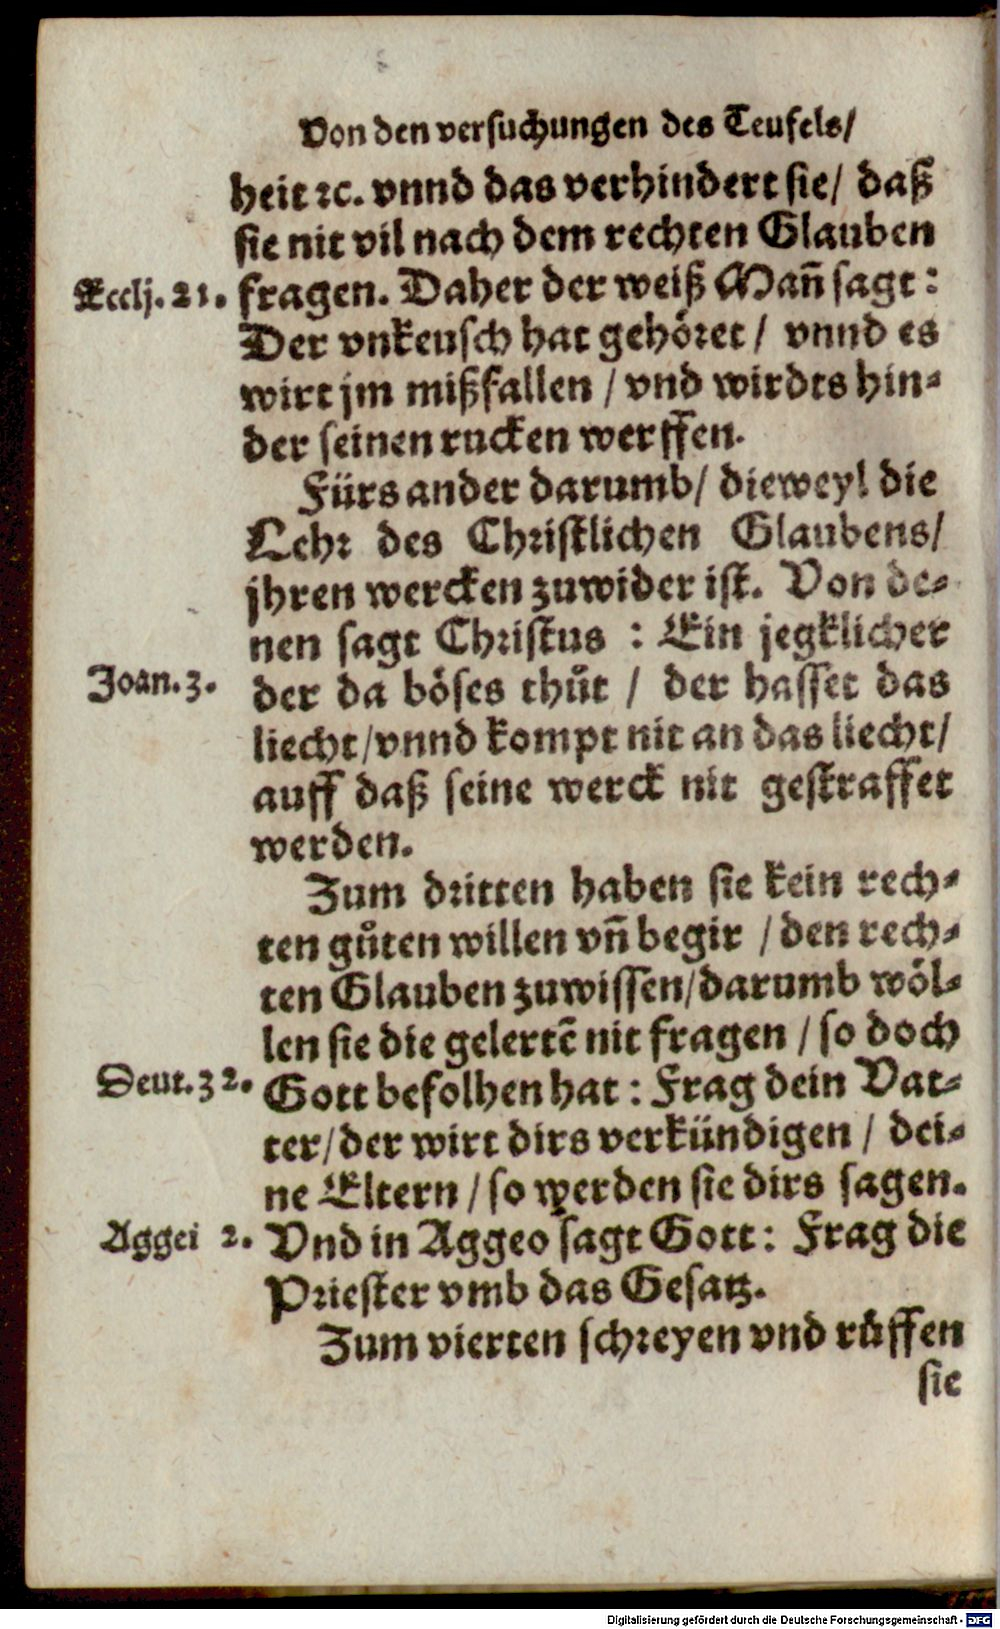 Von den versuchungen des Teufels/
heit ꝛc. vnnd das verhindert sie/ daß
sie nit vil nach dem rechten Glauben
Eccli. 21. fragen. Daher der weiß Mañ sagt:
Der vnkeusch hat gehöret / vnnd es
wirt jm mißfallen / vnd wirdts hin-
der seinen rucken werffen.
Fürs ander darumb/ dieweyl die
Lehr des Christlichen Glaubens/
jhren wercken zuwider ist. Von de-
nen sagt Christus : Ein jegklicher
Joan. 3. der da böses thůt / der hasset das
liecht/vnnd kompt nit an das liecht/
auff daß seine werck nit gestraffet
werden.
Zum dritten haben sie kein rech-
ten gůten willen vñ begir / den rech-
ten Glauben zuwissen/darumb wöl-
len sie die gelertẽ nit fragen / so doch
Deut. 32. Gott befolhen hat : Frag dein Vat-
ter/der wirt dirs verkündigen / dei-
ne Eltern / so werden sie dirs sagen.
Aggei 2. Vnd in Aggeo sagt Gott: Frag die
Priester vmb das Gesatz.
Zum vierten schreyen vnd růffen
sie
Digitalisierung gefördert durch die Deutsche Forschungsgemeinschaft - DFG